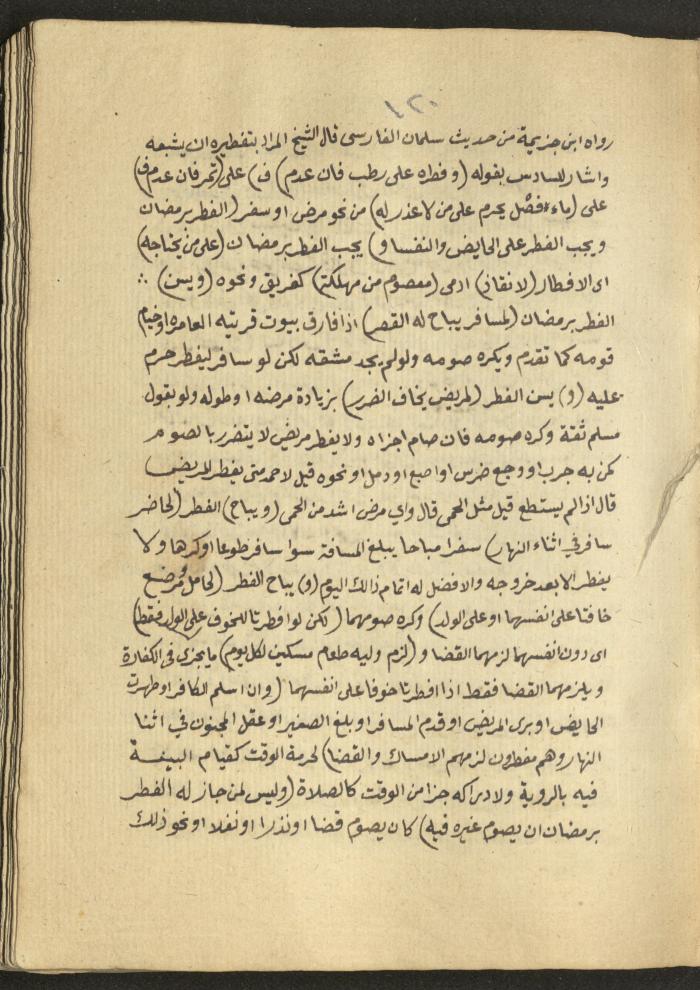 ١٢٠
رواه ابن خزيمة من حديث سلمان الفارسى قال الشيخ المراد بتفطيره ان يشبعه
واشار للسادس بقوله (وفطره على رطب فان عدم) فـ) على (تمر فان عدم فـ)
على (ماء فصل يحرم على من لا عذر له) من نحو مرض او سفر (الفطر برمضان
ويجب الفطر على الحايض والنفسا و) يجب الفطر برمضان (على من يحتاجه)
اى الافطار (لانقاذ) ادمى (معصوم من مهلكة) كغريق ونحوه (ويسن) ∴
الفطر برمضان (لمسافر يباح له القصر) اذا فارق بيوت قريته العامره او خيام
قومه كما تقدم ويكره صومه ولو لم يجد مشقه لكن لو سافر ليفطر حرم
عليه (و) يسن الفطر (لمريض يخاف الضرر) بزيادة مرضه او طوله ولو بقول
مسلم ثقة وكره صومه فان صام اجزاه ولا يفطر مريض لا يتضرر بالصوم
كمن به جرب او وجع ضرس او اصبع او دمل او نحوه قيل لاحمد متى يفطر المريض
قال اذا لم يستطع قيل مثل الحمى قال واي مرض اشد من الحمى (ويباح) الفطر (لحاضر
سافر في اثناء النهار) سفرا مباحا يبلغ المسافة سوا سافر طوعا او كرها ولا
يفطر الا بعد خروجه والافضل له اتمام ذالك اليوم (و) يباح الفطر (لحامل ومرضع
خافتا على انفسهما او على الولد) وكره صومهما (لكن لو افطرتا للخوف على الولد فقط)
اى دون انفسهما لزمهما القضا و(لزم وليه طعام مسكين لكل يوم) ما يجزى في الكفارة
ويلزمهما القضا فقط اذا افطرتا خوفا على انفسهما (وان اسلم الكافر او طهرت
الحايض او برى المريض او قدم المسافر او بلغ الصغير او عقل المجنون في اثنا
النهار وهم مفطرون لزمهم الامساك والقضا) لحرمة الوقت كقيام البينة
فيه بالروية ولادراكه جزا من الوقت كالصلاة (وليس لمن جاز له الفطر
برمضان ان يصوم غيره فيه) كان يصوم قضا او نذرا او نفلا او نحو ذلك